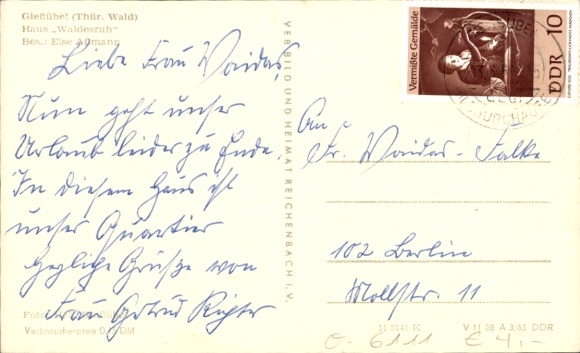 Gießübel (Thür. Wald)
Haus „Waldesruh"
Bes.: Else Aßmann
Liebe Frau Waidas,
Nun geht unser
Urlaub leider zu Ende.
In diesem Haus ist
unser Quartier
Herzliche Grüße von
Frau Gertrud Richter
Foto:
Verbraucherpreis 0,15 DM
VERBILD UND HEIMAT REICHENBACH I. V.
Vermißte Gemälde
DDR 10
An
Fr. Waidas-Falke
102 Berlin
Mollstr. 11
11 3141 K
V 11 28 A 3/63 DDR
O- 6111 € 4,-